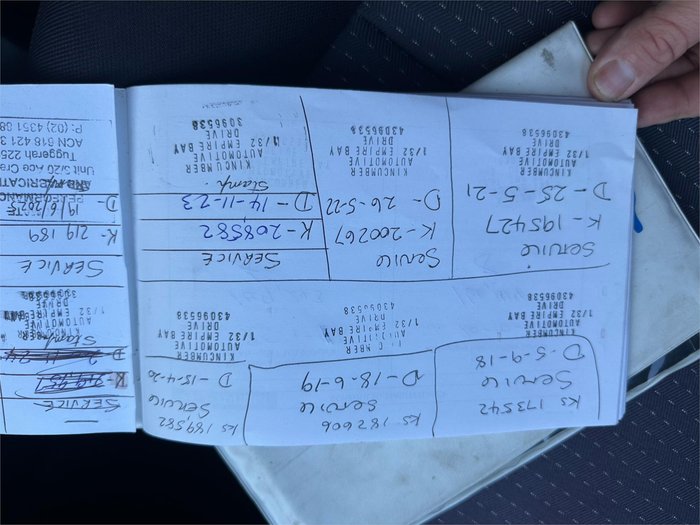 Ks 173542
Service
D - 5-9-18
KINCUMBER
AUTOMOTIVE
1/32 EMPIRE BAY
DRIVE
43096538
Ks 182606
Service
D - 18-6-19
1/32 EMPIRE BAY
DRIVE
43096538
Ks 189582
Service
D - 15-4-20
KINCUMBER
AUTOMOTIVE
1/32 EMPIRE BAY
DRIVE
43096538
SERVICE
K-
D-
Stamp
1/32 EMPIRE BAY
DRIVE
43096538
Service
K-195427
D - 25-5-21
KINCUMBER
AUTOMOTIVE
1/32 EMPIRE BAY
DRIVE
43096538
Service
K-200267
D - 26-5-22
KINCUMBER
AUTOMOTIVE
1/32 EMPIRE BAY
DRIVE
43096538
SERVICE
K-208582
D-14-11-23
Stamp
KINCUMBER
AUTOMOTIVE
1/32 EMPIRE BAY
DRIVE
43096538
SERVICE
K- 219 189
D-
Unit 5/20 Ace Cre
Tuggerah 225
ACN 618 421 3
P: (02) 4351 08